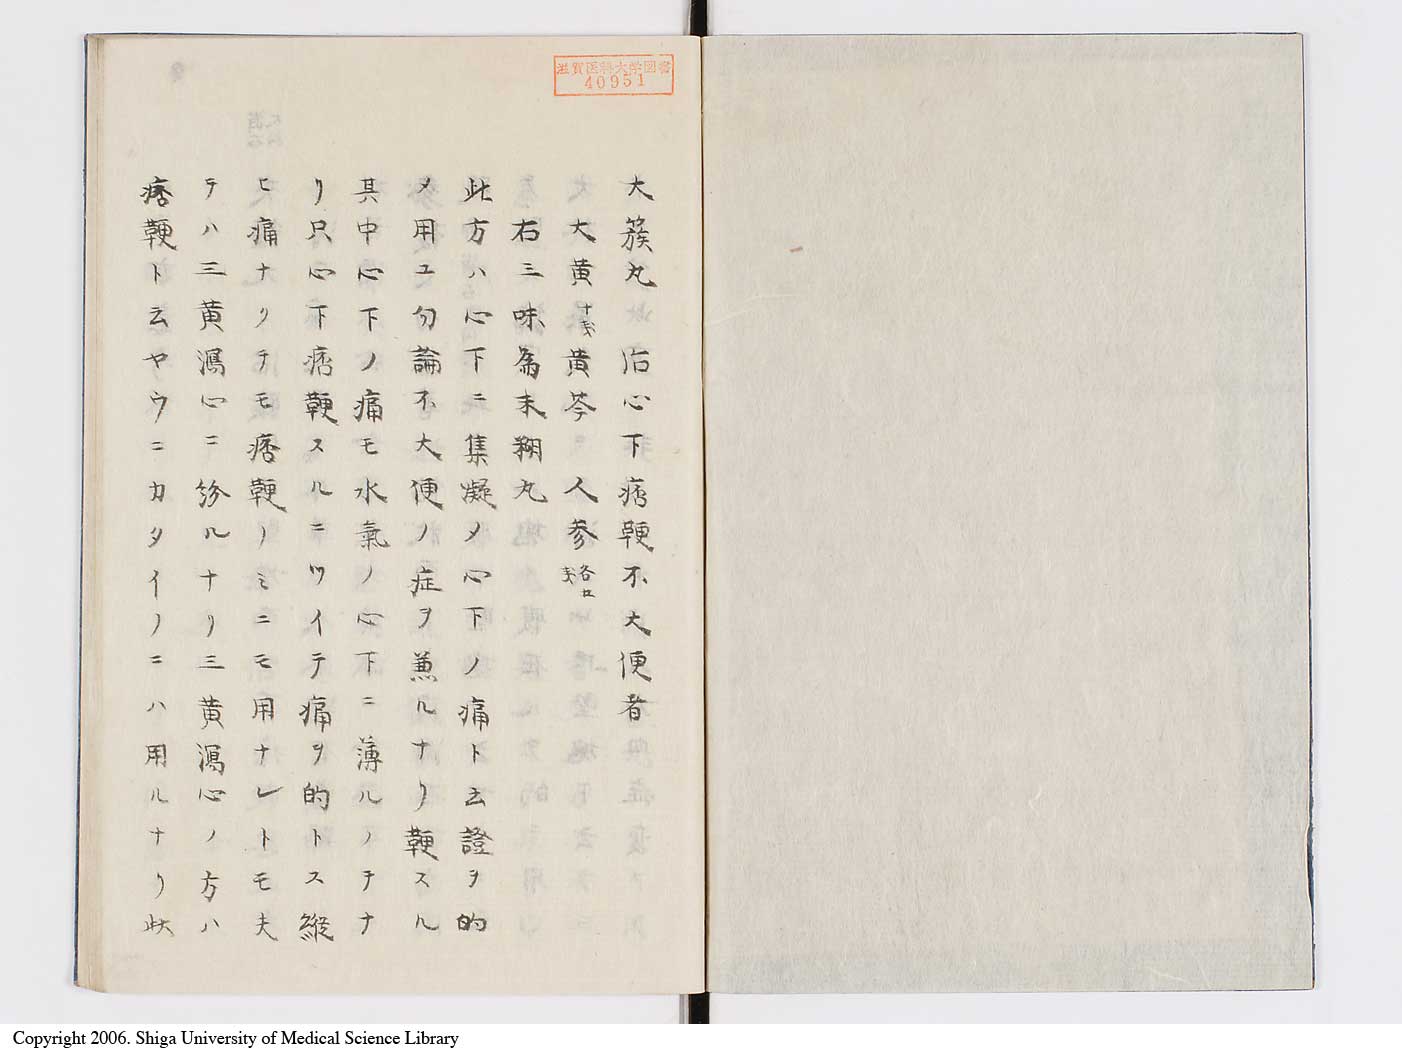 滋賀医科大学図書
40951
大簇丸 治心下痞鞕不大便者
大黄十戔 黄芩 人参各五戔
右三味為末糊丸
此方ハ心下ニ集凝ノ心下ノ痛ト云證ヲ的
メ用ユ勿論不大便ノ症ヲ兼ルナリ鞕スル
其中心下ノ痛モ水氣ノ心下ニ薄ルノヲナ
リ只心下痞鞕スルニツイテ痛ヲ的トス縦
ヒ痛ナクテモ痞鞕ノミニモ用ナレトモ夫
テハ三黄瀉心ニ紛ルナリ三黄瀉心ノ方ハ
痞鞕ト云ヤウニカタイノニハ用ルナリ此
Copyright 2006. Shiga University of Medical Science Library